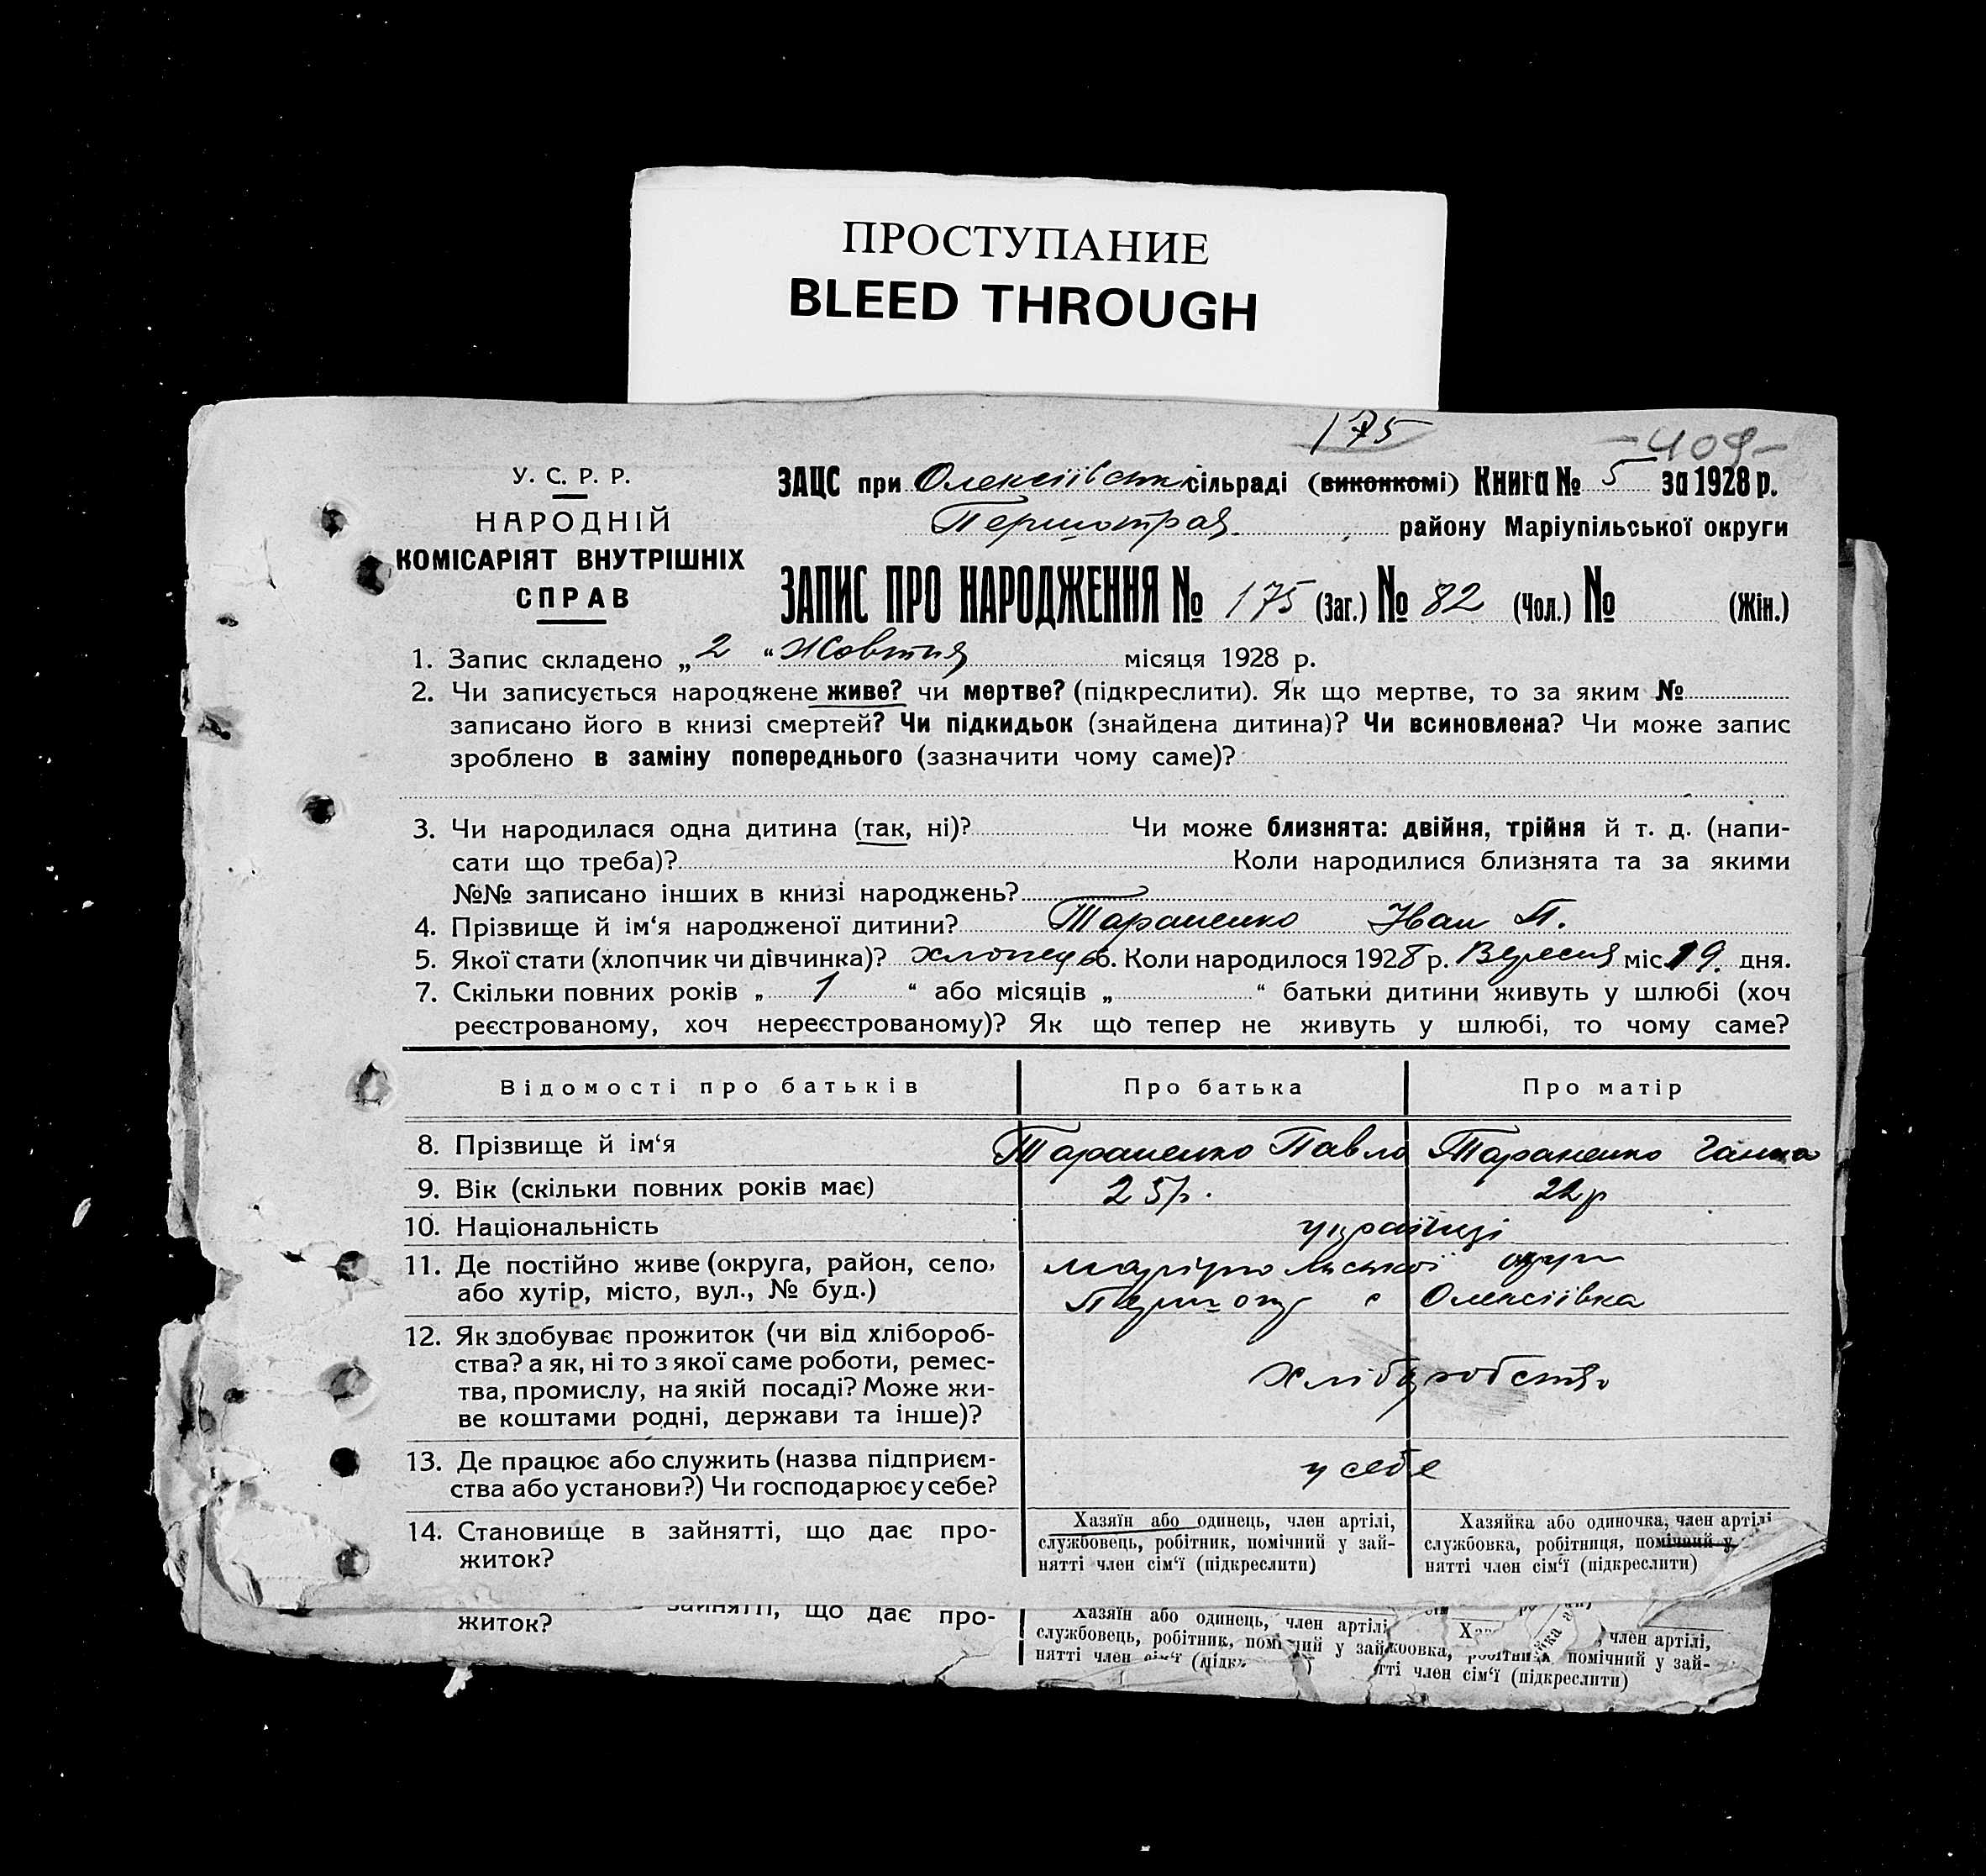 ПРОСТУПАНИЕ
BLEED THROUGH
175
-409-
У. С. Р. Р.
НАРОДНІЙ
КОМІСАРІЯТ ВНУТРІШНІХ
СПРАВ
ЗАЦС при Олексіївськ сільраді (виконкомі) Книга № 5 за 1928 р.
району Маріупільської округи
ЗАПИС ПРО НАРОДЖЕННЯ № 175 (Заг.) № 82 (Чол.) № (Жін.)
1. Запис складено „ 2 “ Жовтня місяця 1928 р.
2. Чи записується народжене живе? чи мертве? (підкреслити). Як що мертве, то за яким №
записано його в книзі смертей? Чи підкидьок (знайдена дитина)? Чи всиновлена? Чи може запис
зроблено в заміну попереднього (зазначити чому саме)?
3. Чи народилася одна дитина (так, ні)? Чи може близнята: двійня, трійня й т. д. (напи-
сати що треба)? Коли народилися близнята та за якими
№№ записано інших в книзі народжень?
4. Прізвище й ім‘я народженої дитини? Тараненко Іван П.
5. Якої стати (хлопчик чи дівчинка)? хлопець 6. Коли народилося 1928 р. Вересня міс. 19. дня.
7. Скільки повних років „ 1 “ або місяців „ “ батьки дитини живуть у шлюбі (хоч
реєстрованому, хоч нереєстрованому)? Як що тепер не живуть у шлюбі, то чому саме?
Відомості про батьків Про батька Про матір
8. Прізвище й ім‘я Тараненко Павло Тараненко Ганна
9. Вік (скільки повних років має) 25 р. 22 р
10. Національність українці
11. Де постійно живе (округа, район, село, Маріупольської округи
або хутір, місто, вул., № буд.) с Олексіївка
12. Як здобуває прожиток (чи від хлібороб-
ства? а як, ні то з якої саме роботи, ремес-
тва, промислу, на якій посаді? Може жи-
ве коштами родні, держави та інше)?
хліборобство
13. Де працює або служить (назва підприєм-
ства або установи?) Чи господарює у себе?
у себе
14. Становище в зайнятті, що дає про-
житок?
Хазяїн або одинець, член артілі,
службовець, робітник, помічний у зай-
нятті член сім‘ї (підкреслити)
Хазяйка або одиночка, член артілі
службовка, робітниця, помічний у
нятті член сім‘ї (підкреслити)
зайнятті, що дає про-
житок?
Хазяїн або одинець, член артілі
службовець, робітник, помічний у зай
нятті член сім‘ї
член артілі,
помічний у зай-
член сім‘ї (підкреслити)